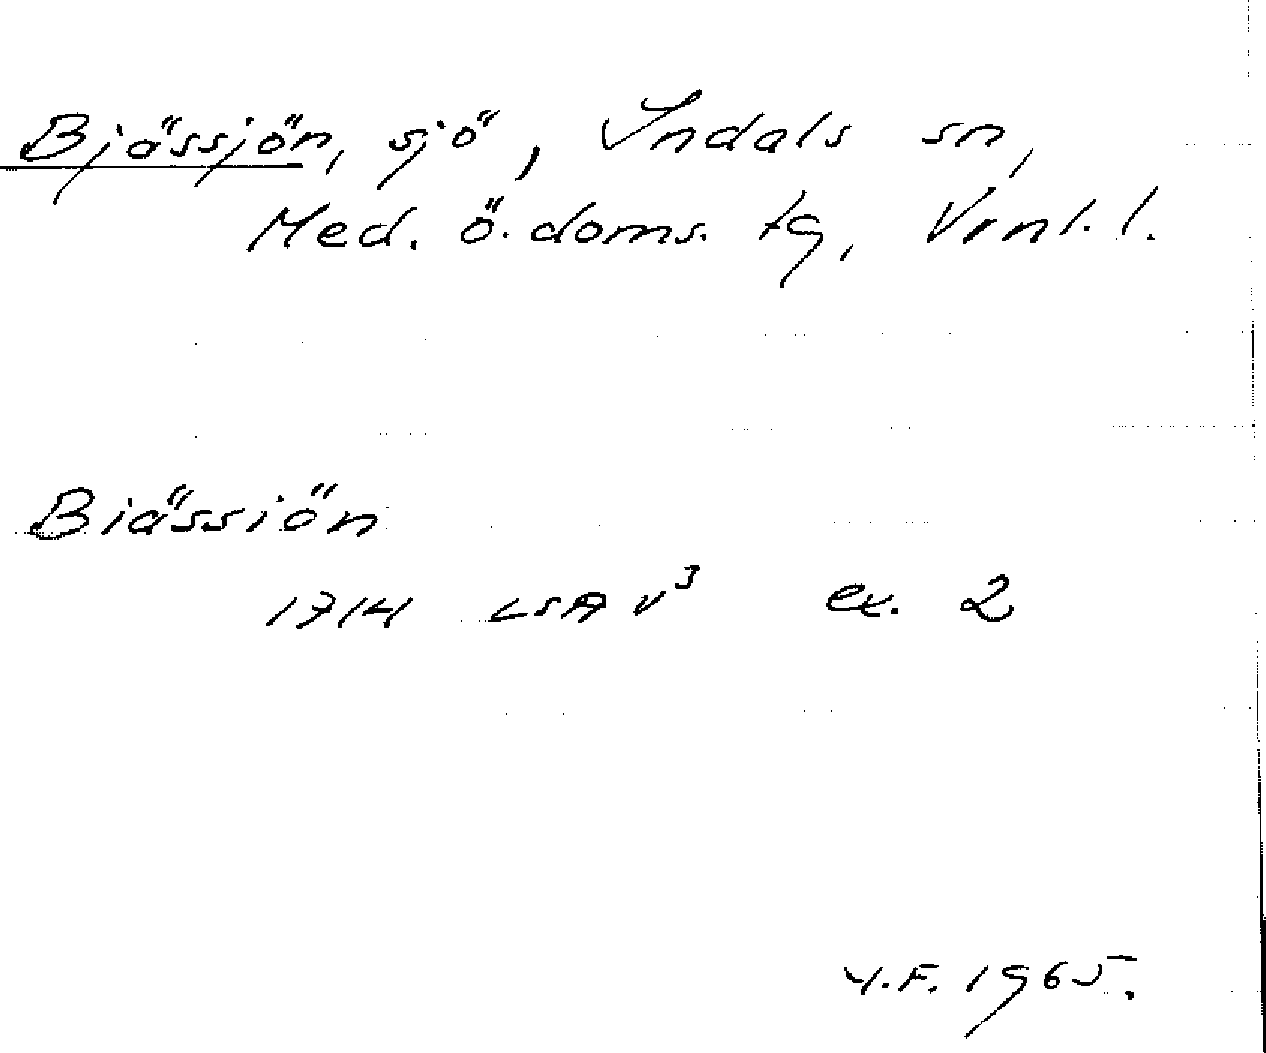 Bjässjön, sjö, Indals sn,
Med. ö. doms. tg, Vrnl. l.
Biässiön
1714 LSA V³ ex. 2
Y.F. 1965.